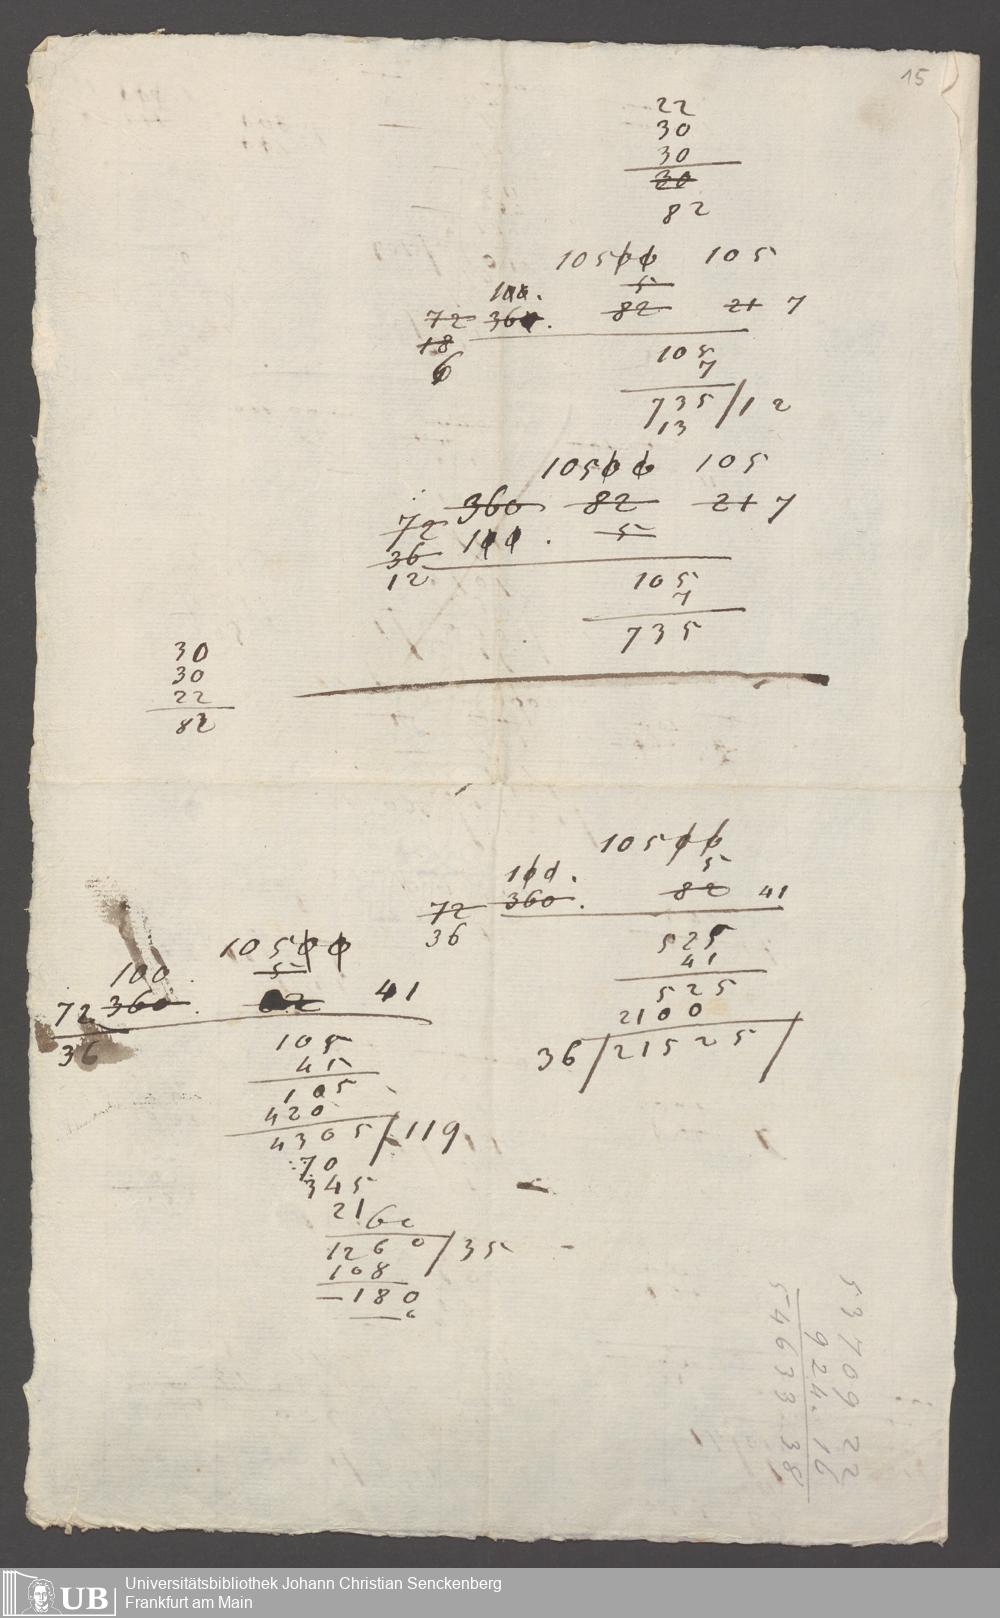 15
22
30
30
30
82
10500 105
5
100.
72 360. 82 21 7
18
6
105
7
735/12
13
10500 105
360 82 21 7
72
100. 5
36
12
105
7
735
30
30
22
82
10500
5
100.
72 360. 82 41
36
525
41
525
2100
36/21525/
10500
5
100
72 360. 82 41
36
105
41
105
420
4305/119
70
345
21
60
1260/35
108
180
0
53709 22
924. 16
54633. 38
UB
Universitätsbibliothek Johann Christian Senckenberg
Frankfurt am Main